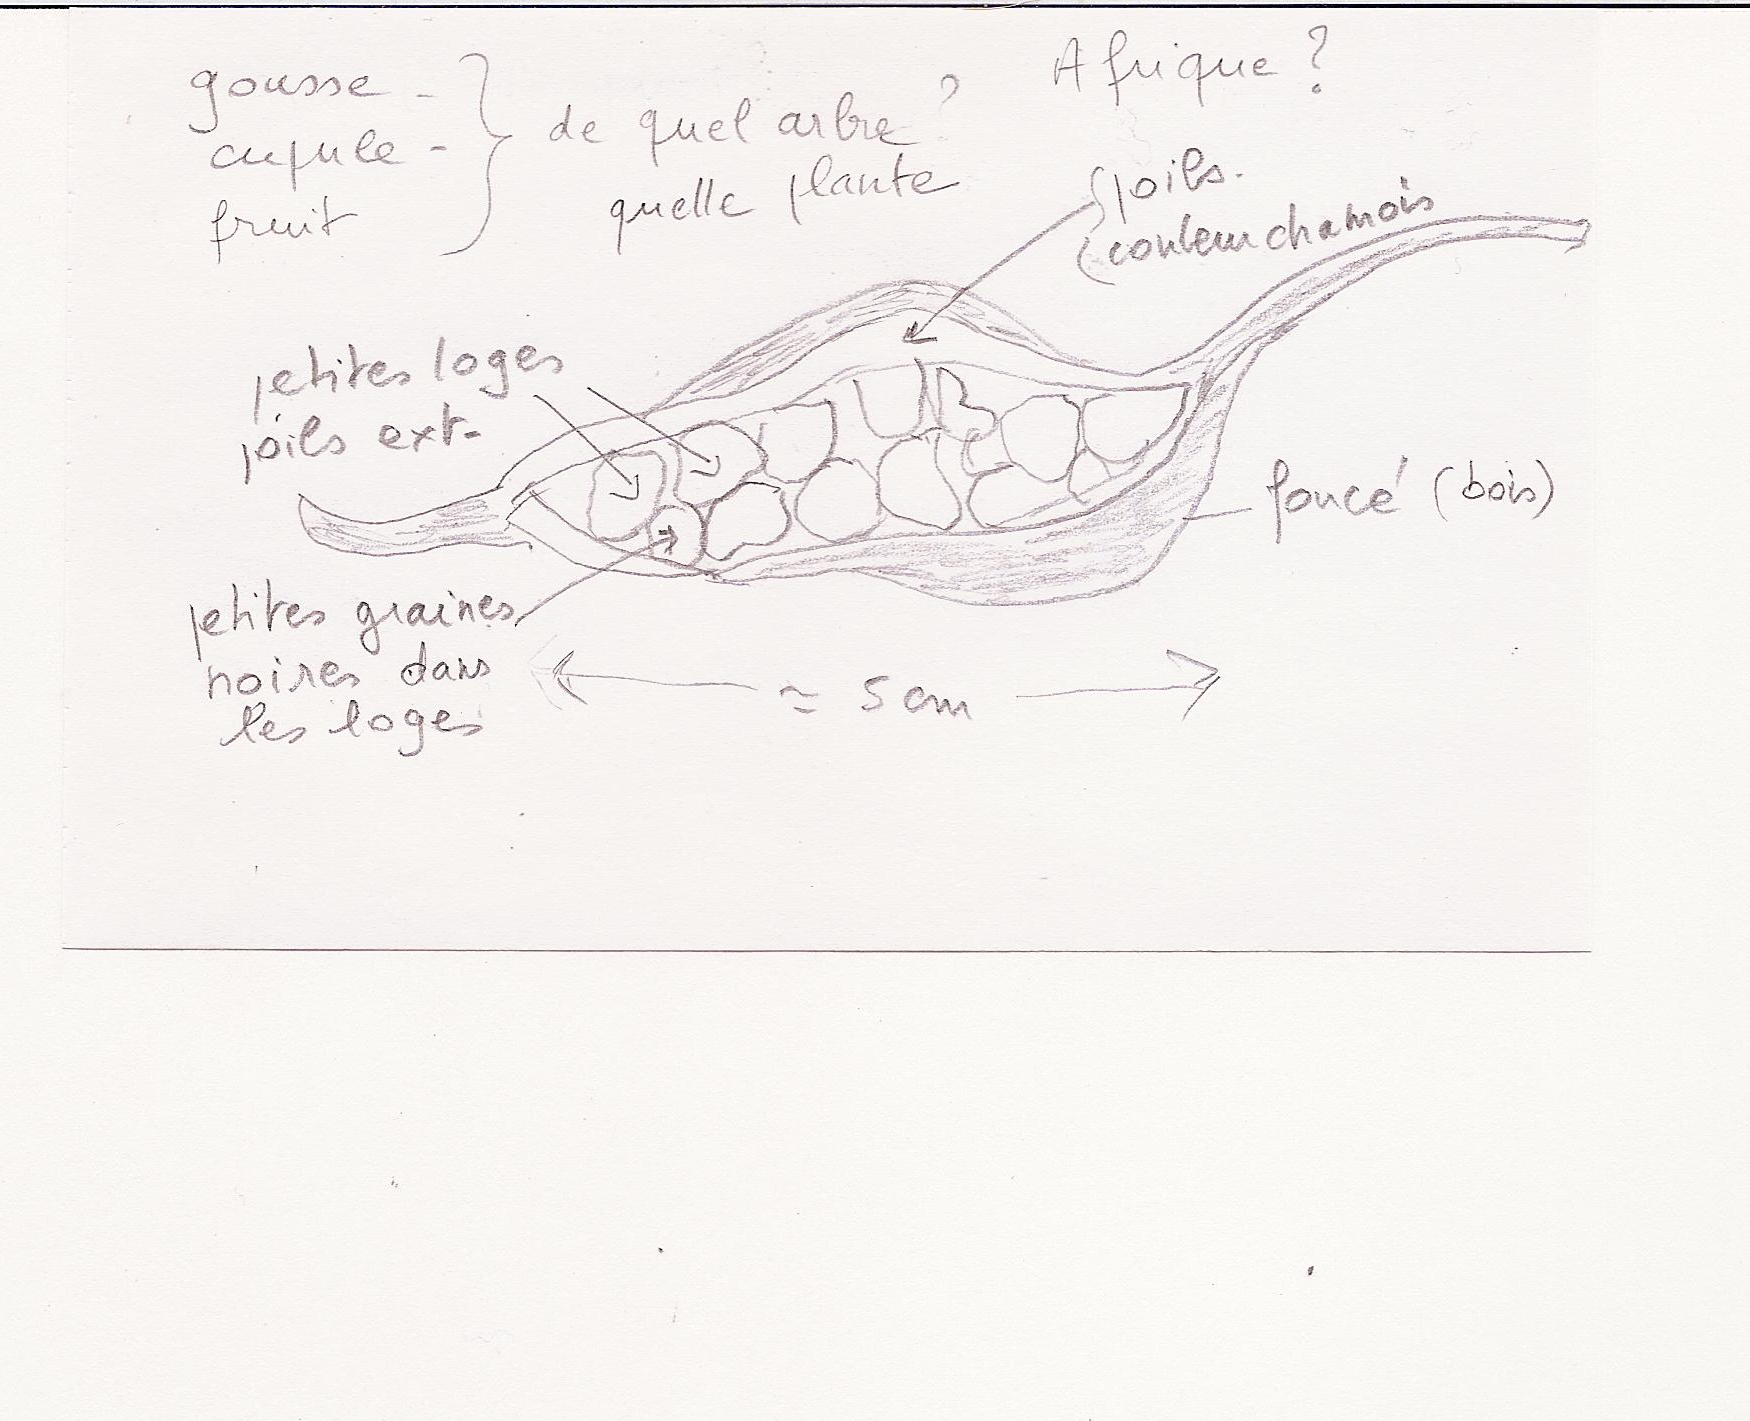 gousse -
cupule -
fruit
de quel arbre ?
quelle plante
Afrique ?
poils.
couleur chamois
petites loges
poils ext-
foncé (bois)
petites graines
noires dans
les loges
≃ 5 cm